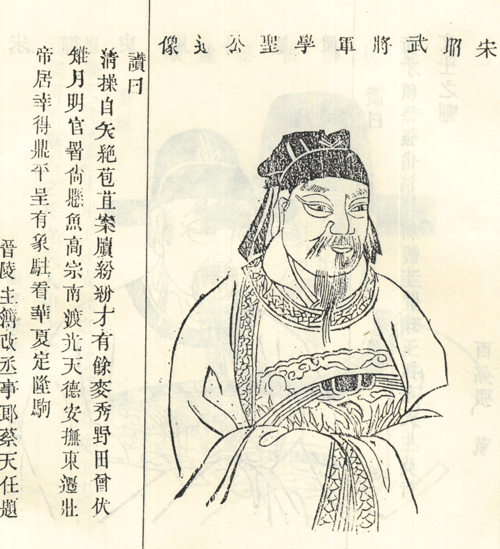 宋昭武將軍學聖公像
讚曰
清操自矢絕苞苴案牘紛紛才有餘麥秀野田曾伏
雉月明官署尙懸魚高宗南渡光天德安撫東遷壯
帝居幸得鼎平呈有象駐看華夏定隆駒
晉陵主簿改丞事郎蔡天任題